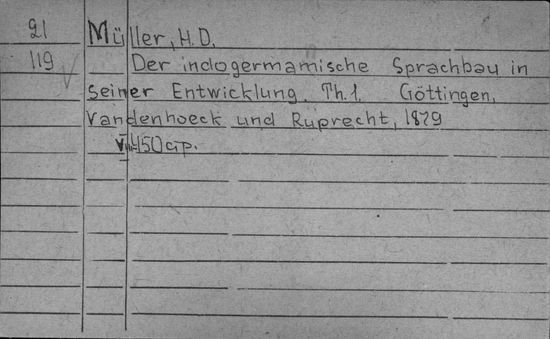 21 Müller, H.D.
119 Der indogermamische Sprachbau in
seiner Entwicklung. Th.1. Göttingen,
Vandenhoeck und Ruprecht, 1879
450 с.